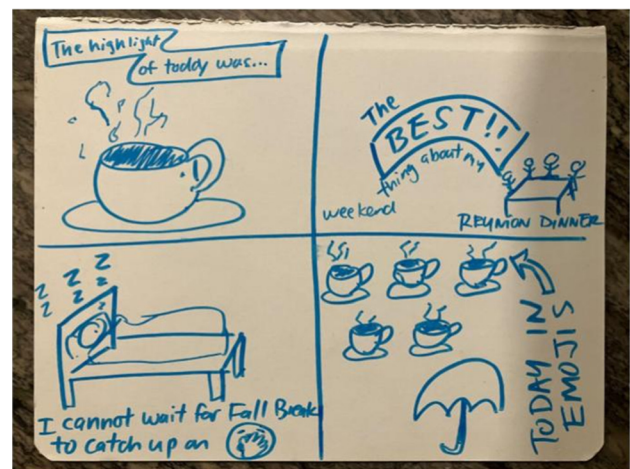 The highlight
of today was...
The
BEST!!
thing about my
weekend
REUNION DINNER
z z z
z z z
I cannot wait for Fall Break
to catch up on
TODAY IN
EMOJIS